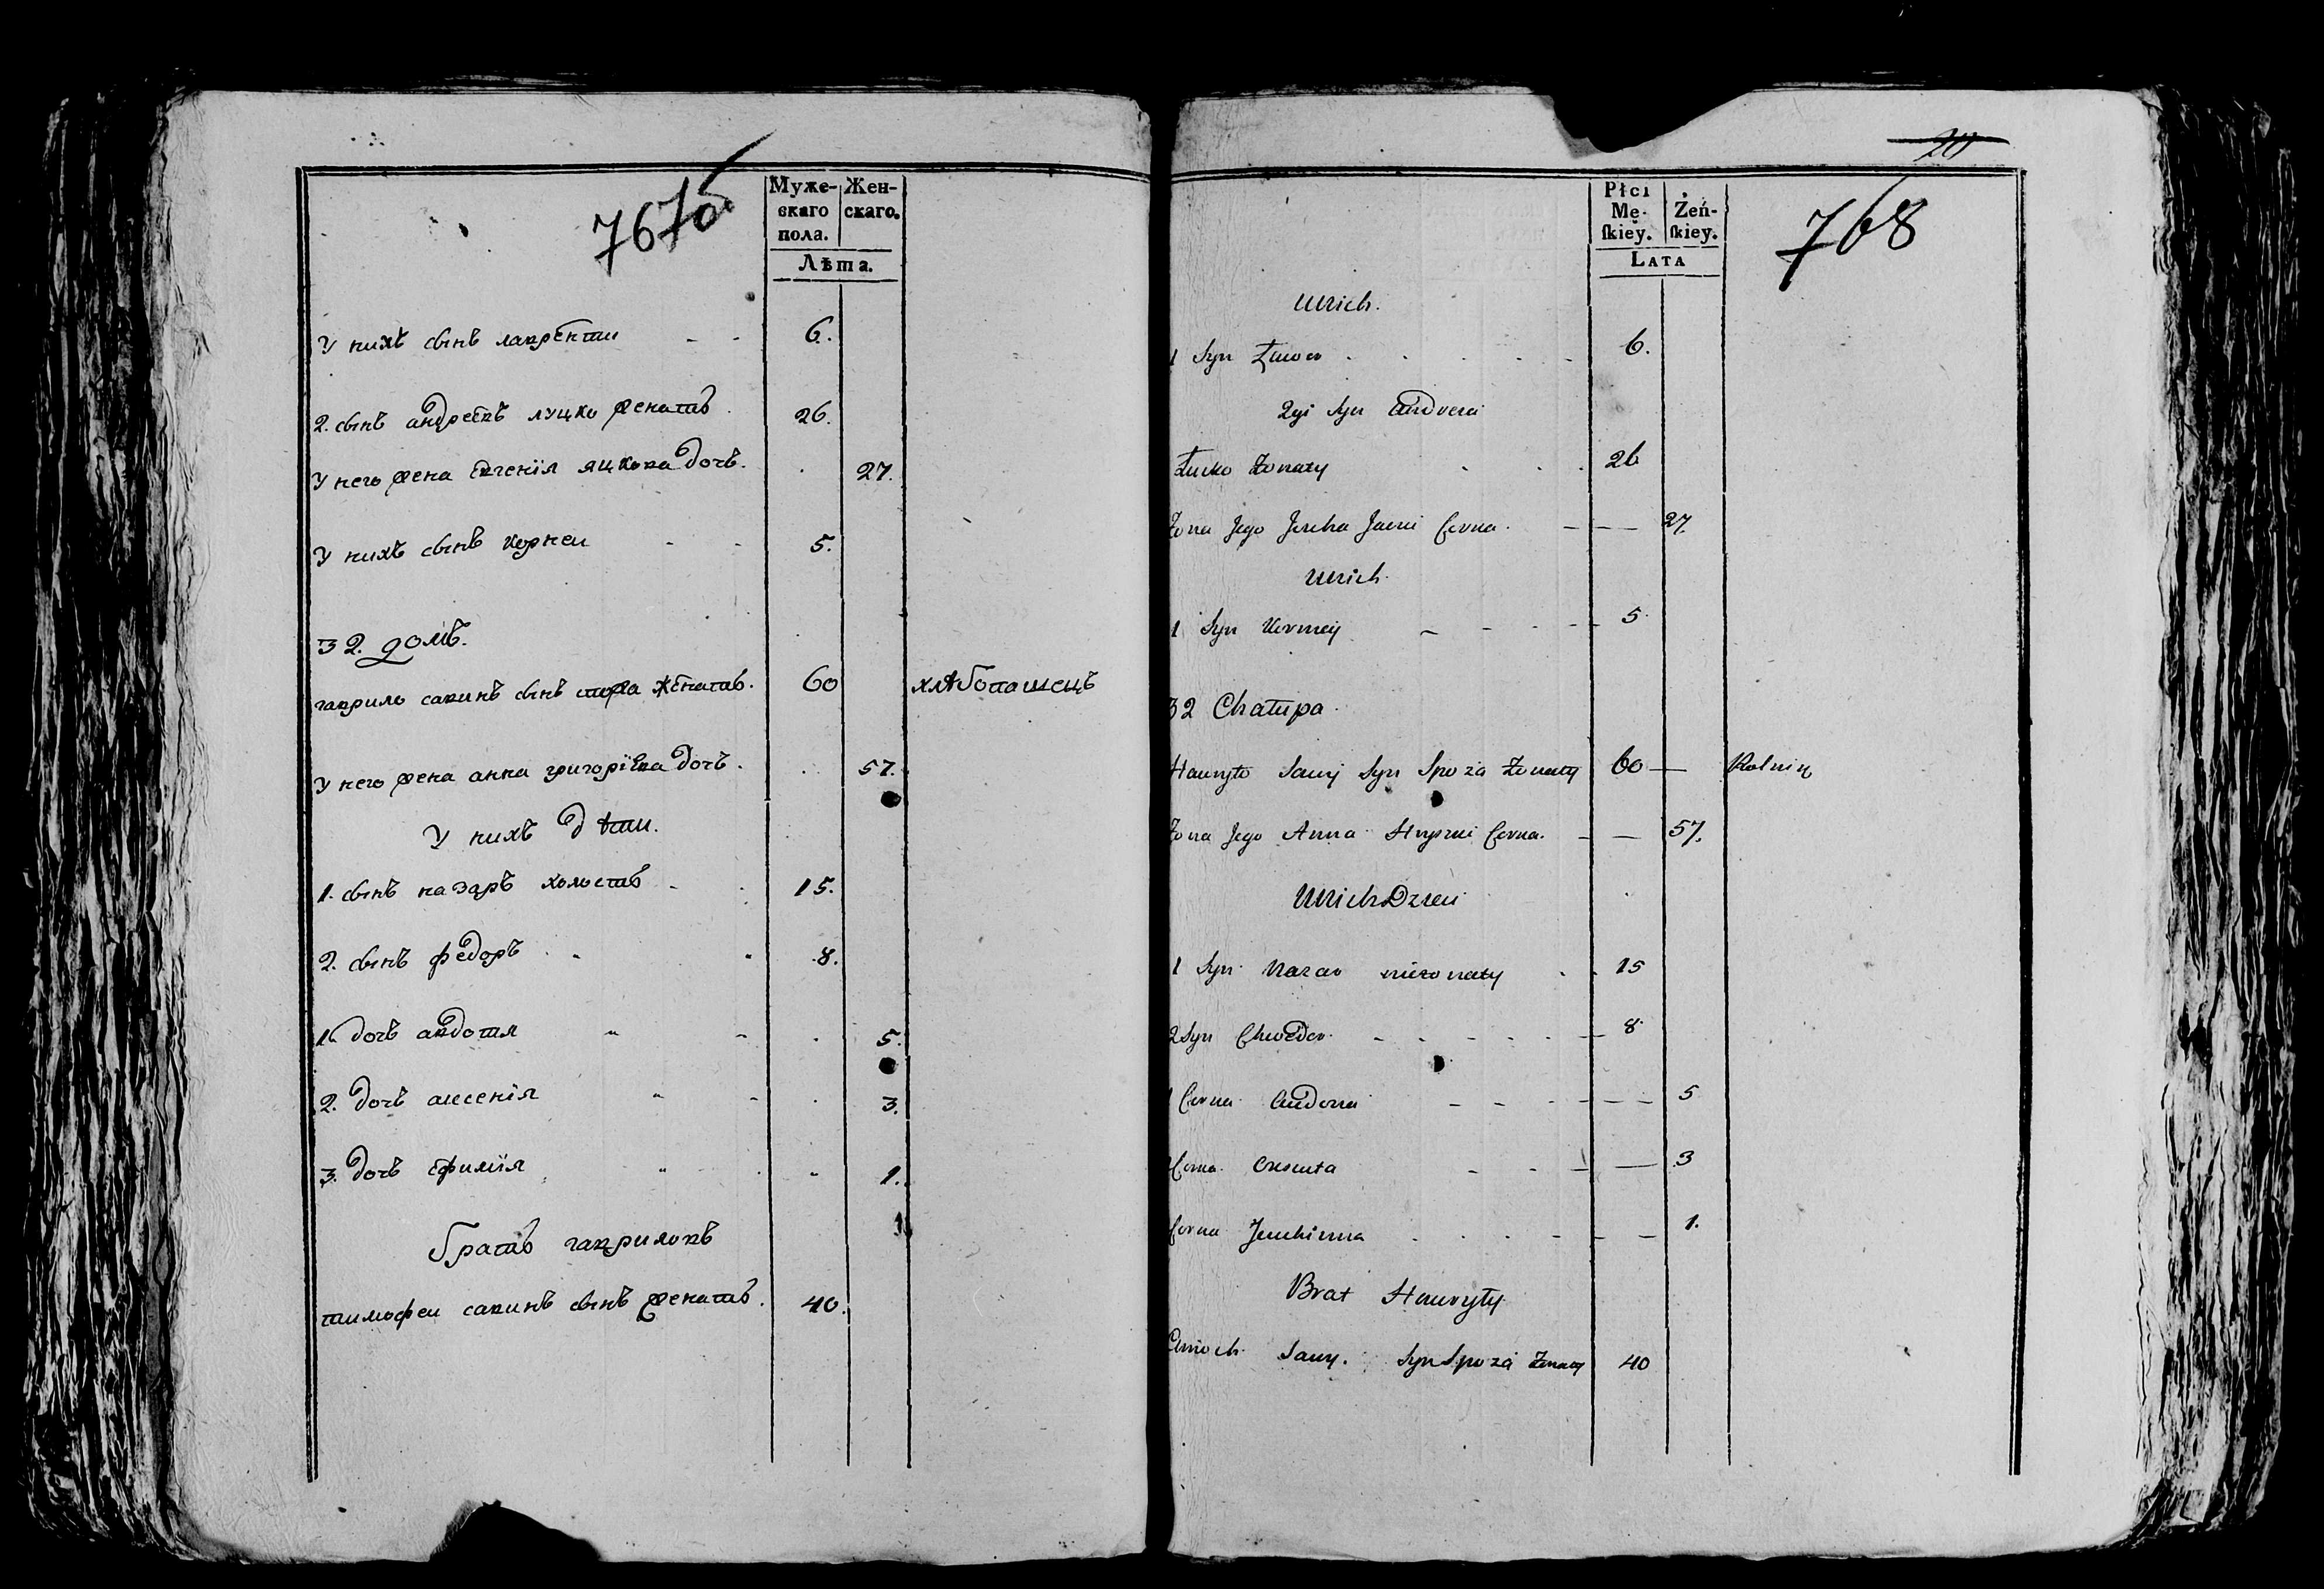 767об
Муже-
скаго
пола.
Жен-
скаго.
Лѣта.
У нихъ сынъ лаврентии - - 6.
2. сынъ андреевъ луцко женатъ. 26.
У него жена евгенія яцкова дочь. 27.
У нихъ сынъ корнеи - - 5.
32. домъ.
гаврило савинъ сынъ женатъ. 60 хлѣбопашецъ
У него жена анна григоріева дочь. 57.
У нихъ дѣти.
1. сынъ назаръ холостъ - 15.
2. сынъ федоръ 8.
1. дочь авдотя 5.
2. дочь аксенія 3.
3. дочь ефимія 1.
братъ гавриловъ
тимофеи савинъ сынъ женатъ. 40.
20
768
Płci
Mę-
ſkiey.
Żeń-
ſkiey.
LATA
Unich.
1 Syn Ławer 6.
2gi Syn Andreia
Łucko Żonaty 26
Żona Jego Jacni Corna. 27.
Unich.
1 Syn Korniey 5.
32 Chałupa.
Hawryło Sawy Syn Spoza Żonaty 60 Rolnik
Żona Jego Anna Hryszki Corna. 57.
Unich Dzieci
1 Syn Nazar nieżonaty 15
2 Syn Chwedor 8.
1 Corna Audocia 5
Corna 3
Corna Jeuchimia 1.
Brat Hawryły
Sawy. Syn Spoza Żonaty 40